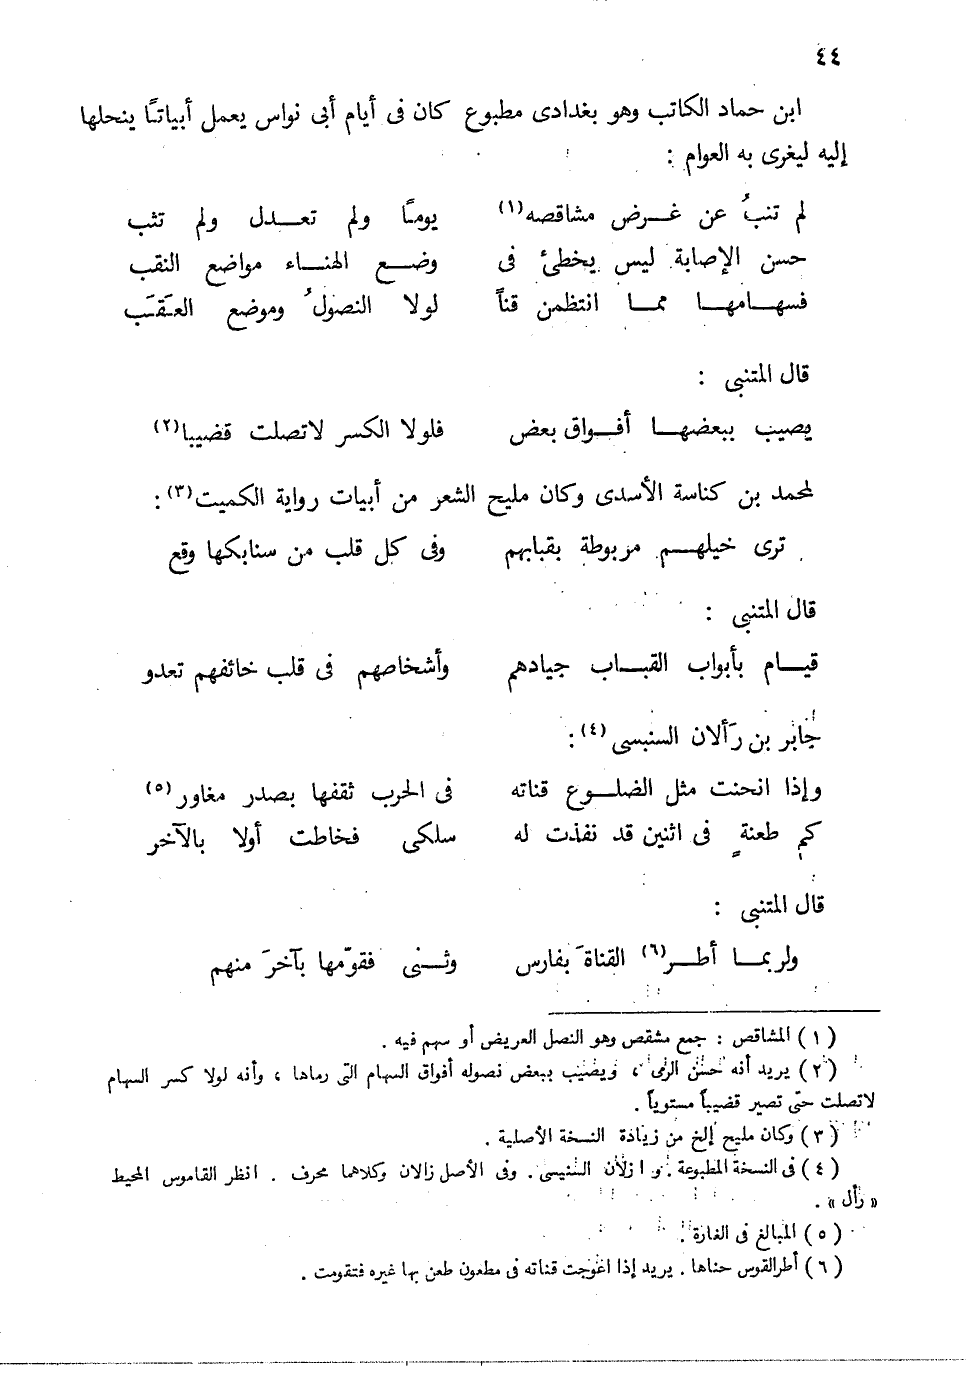 ٤٤
ابن حماد الكاتب وهو بغدادى مطبوع كان فى أيام أبى نواس يعمل أبياتًا ينحلها
إليه ليغرى به العوام :
لم تنبُ عن غـرض مشاقصه(١) يومـًا ولم تعـدل ولم تثب
حسن الإصابة ليس يخطئ فى وضـع الهنـاء مواضع النقب
فسهـامهـا ممـا انتظمن قناً لولا النصولُ وموضع العـقـَـب
قال المتنبى :
يصيب ببعضهـا أفـواق بعض فلولا الكسر لاتصلت قضيبا(٢)
لمحمد بن كناسة الأسدى وكان مليح الشعر من أبيات رواية الكميت(٣) :
ترى خيلهـم مربوطة بقبابهم وفى كل قلب من سنابكها وقع
قال المتنبى :
قيـام بأبواب القبـاب جيادهم وأشخاصهم فى قلب خائفهم تعدو
جابر بن رَألان السنبسى(٤) :
وإذا انحنت مثل الضلـوع قناته فى الحرب ثقفها بصدر مغاور(٥)
كم طعنةٍ فى اثنين قد نفذت له سلكى فخاطت أولا بالآخر
قال المتنبى :
ولربمـا أطـر(٦) القناةَ بفارس وثـنى فقوّمها بآخرَ منهم
(١) المشاقص : جمع مشقص وهو النصل العريض أو سهم فيه .
(٢) يريد أنه حسن الرمى ، ويصيب ببعض نصوله أفواق السهام التى رماها ، وأنه لولا كسر السهام
لاتصلت حتى تصير قضيباً مستوياً .
(٣) وكان مليح إلخ من زيادة النسخة الأصلية .
(٤) فى النسخة المطبوعة . و ازلان السنيسى . وفى الأصل زالان وكلاهما محرف . انظر القاموس المحيط
« رأل » .
(٥) المبالغ فى الغارة .
(٦) أطرالقوس حناها . يريد إذا اعوجت قناته فى مطعون طعن بها غيره فتقومت .